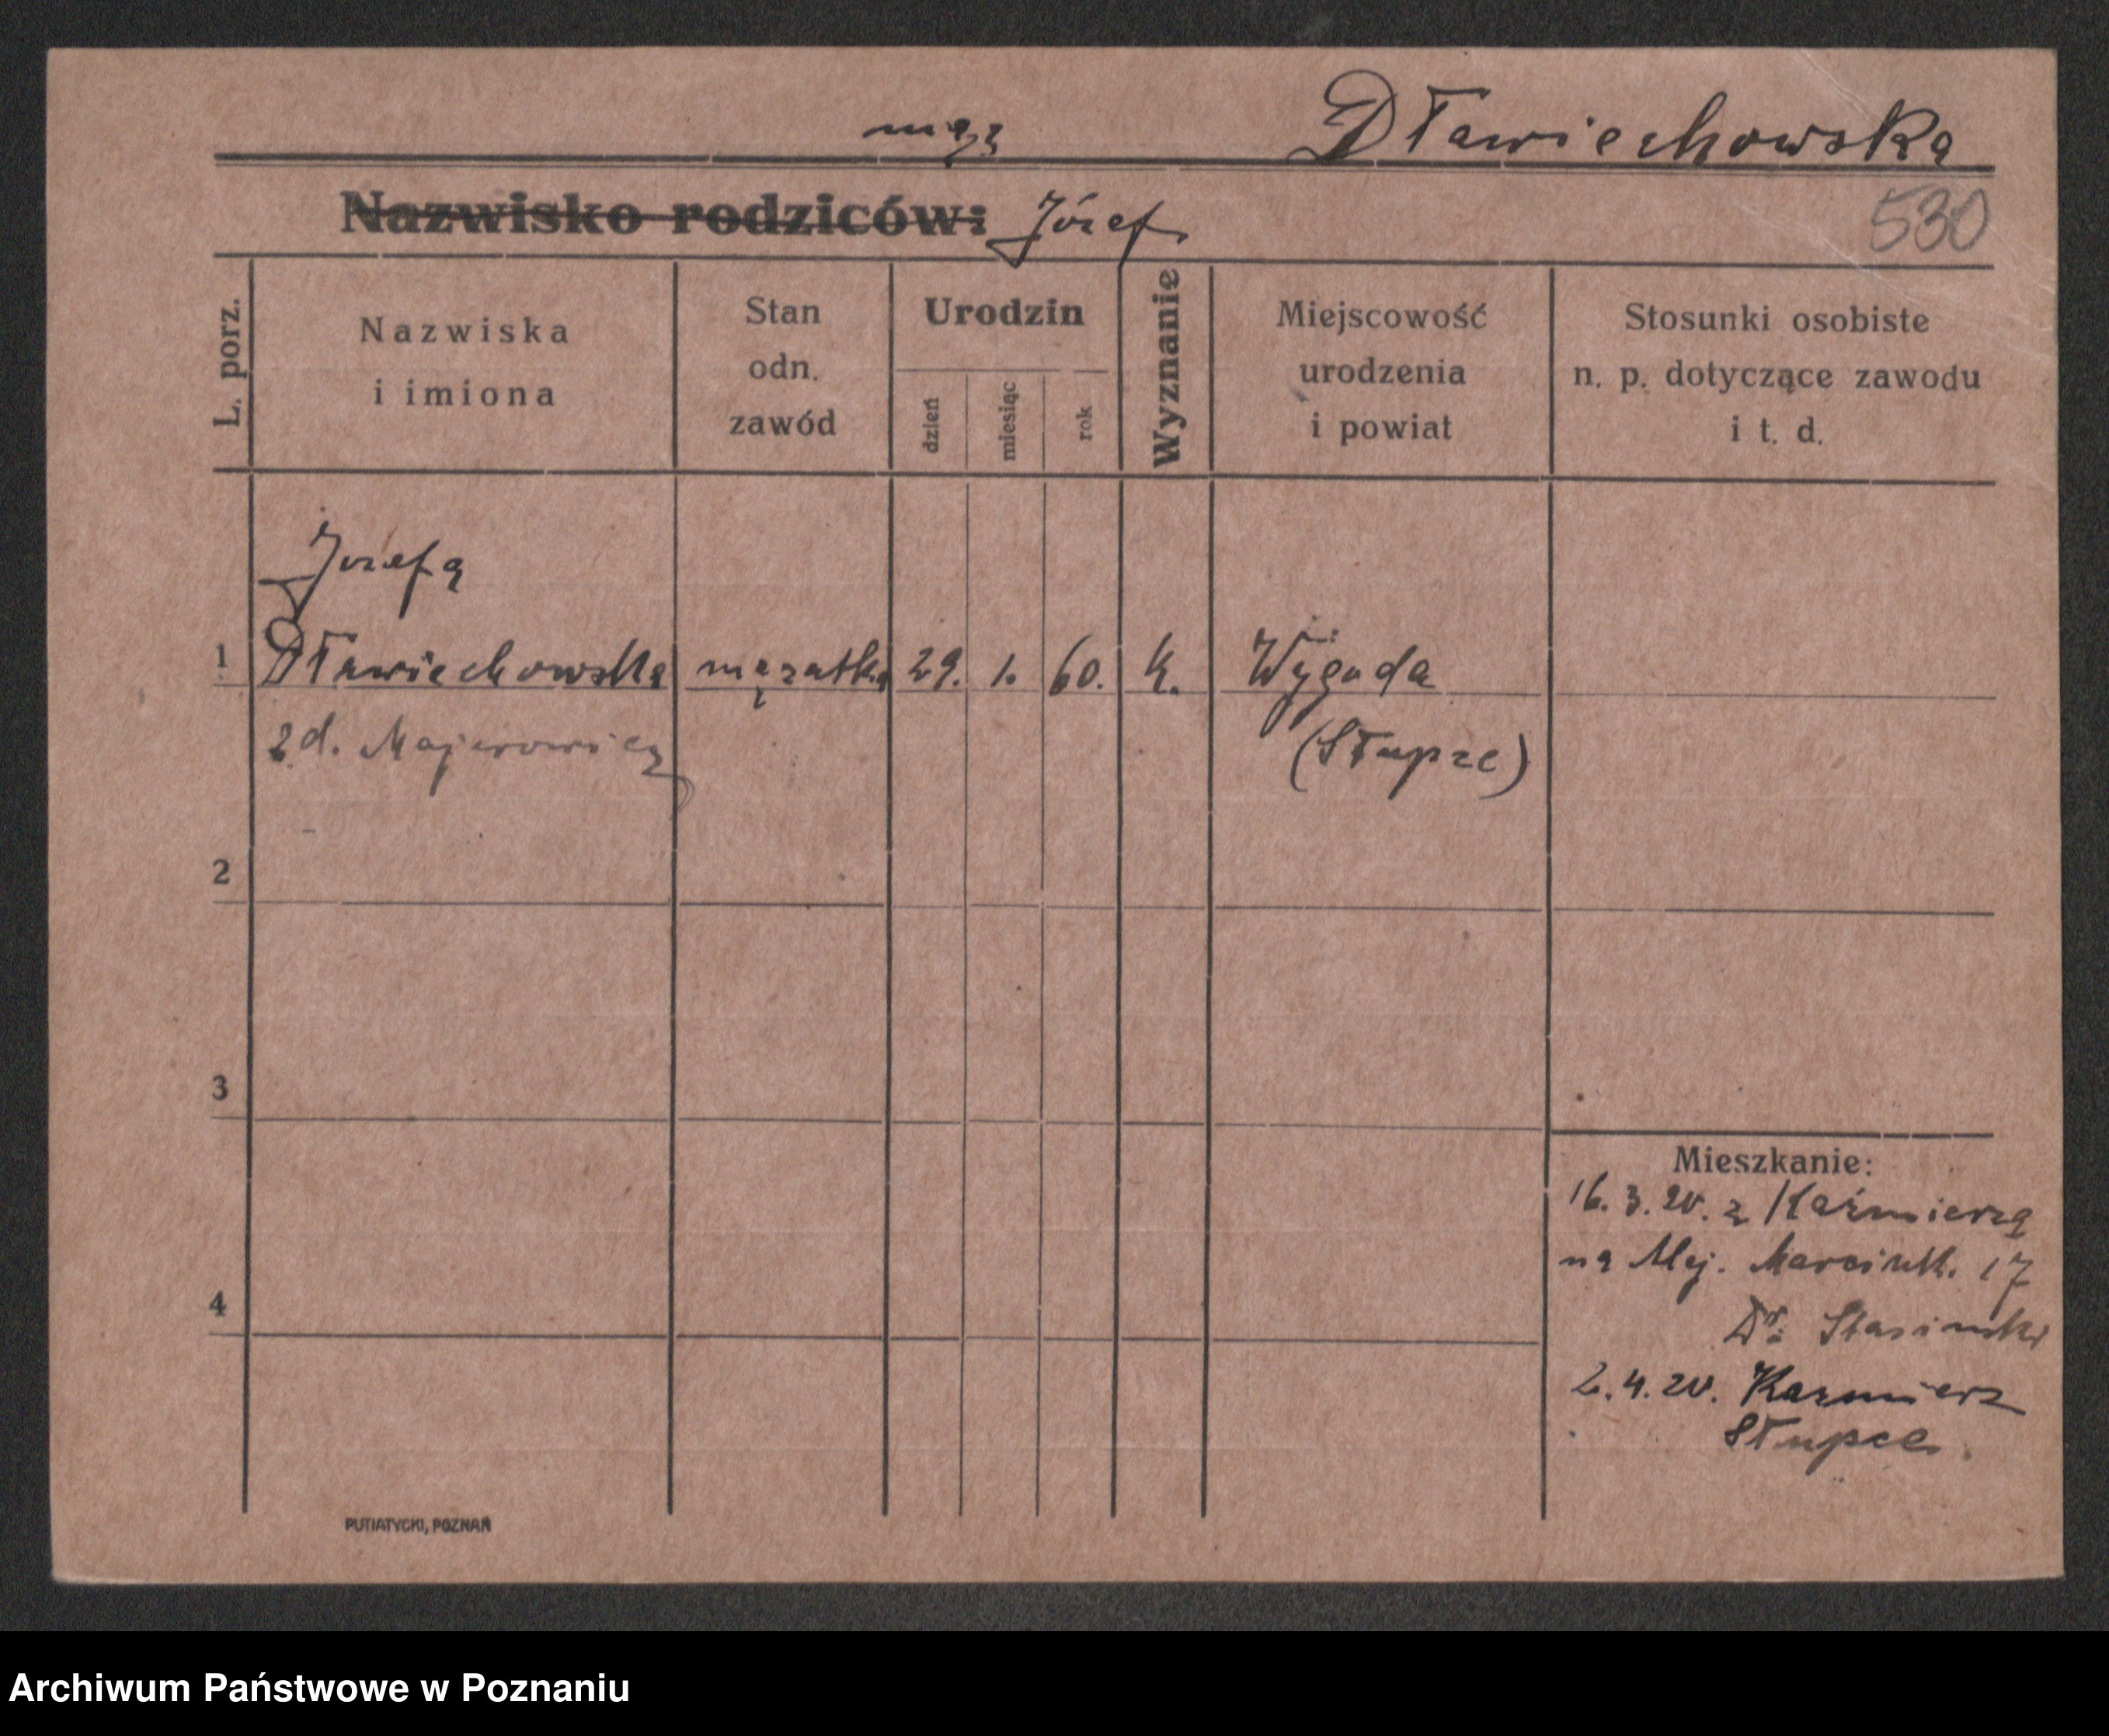 mąż
Dławiechowska
Nazwisko rodziców: Józef
530
L. porz.
Nazwiska
i imiona
Stan
odn.
zawód
Urodzin
dzień
miesiąc
rok
Wyznanie
Miejscowość
urodzenia
i powiat
Stosunki osobiste
n. p. dotyczące zawodu
i t. d.
Józefa
1 Dławiechowska mężatka 29. 1. 60. k. Wygoda
zd. Majerowicz (Słupce)
2
3
Mieszkanie:
16. 3. 20. z Kaźmierza
na Alej. Marcink. 17
4
Dr. Stasiński
2. 4. 20. Kazmierz
Słupce
PUTIATYCKI, POZNAŃ
Archiwum Państwowe w Poznaniu